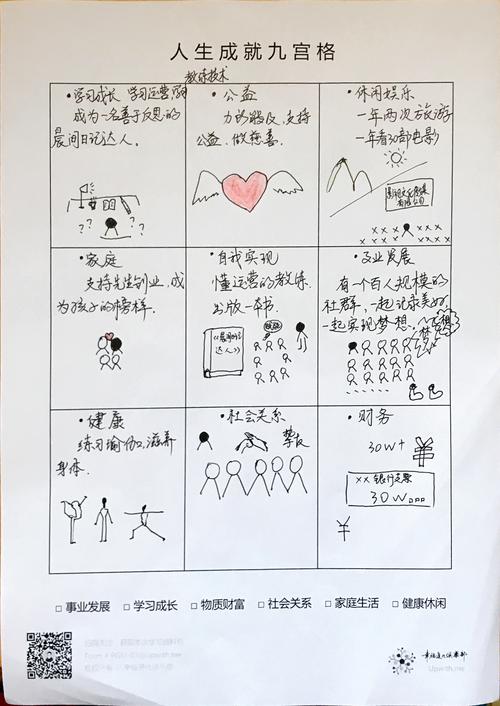 人生成就九宫格
教练技术
·学习成长 学习运营,
成为一名善于反思的
晨间日记达人.
·公益
力所能及,支持
公益,做慈善.
·休闲娱乐
一年两次旅游
一年看30部电影
?? ??
·家庭
支持先生创业,成
为孩子的榜样.
·自我实现
懂运营的教练.
出版一本书.
《晨间日记
达人》
·事业发展
有一个百人规模的
社群,一起记录美好,
一起实现梦想.
梦想
·健康
练习瑜伽,滋养
身体.
·社会关系
挚友
·财务
30W+
¥
×× 银行支票
30W
¥
□ 事业发展 □ 学习成长 □ 物质财富 □ 社会关系 □ 家庭生活 □ 健康休闲
幸福进化俱乐部
Upwith.me